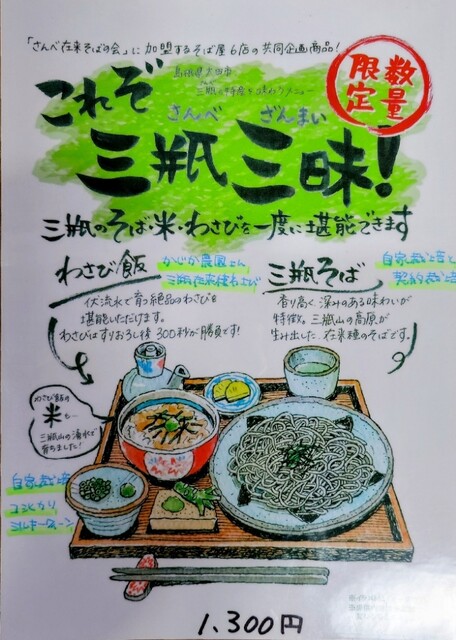 「さんべ在来そばの会」に加盟するそば屋6店の共同企画商品!
島根県大田市
三瓶の特産を味わうメニュー
数量
限定
これぞ
さんべ ざんまい
三瓶三昧!
三瓶のそば・米・わさびを一度に堪能できます
わさび飯
かじか農園さん
三瓶在来種わさび
伏流水で育つ絶品のわさびを
堪能いただけます。
わさびはすりおろし後300秒が勝負です!
三瓶そば
自家栽培と
契約栽培
香り高く深みのある味わいが
特徴。三瓶山の高原が
生み出した、在来種のそばです。
わさび飯の
米も…
三瓶山の湧水で
育ちました!
自家栽培
コシヒカリ
ミルキークイーン
1,300円